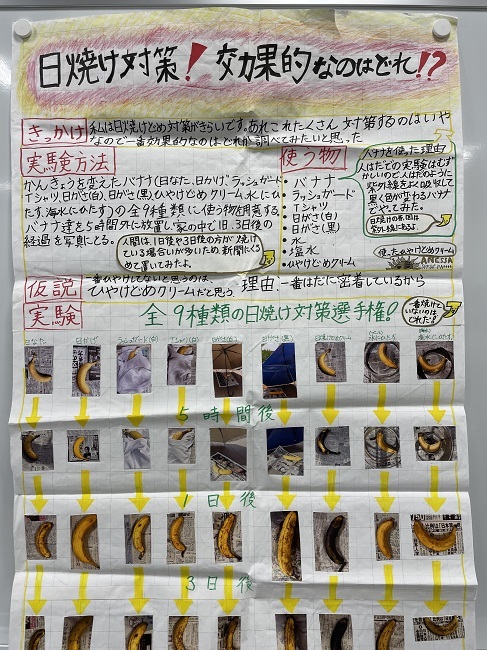 日焼け対策!効果的なのはどれ!?
きっかけ
私は日焼けどめ対策がきらいです。あれこれたくさん対策するのはいや
なので一番効果的なのはどれか調べてみたいと思った
実験方法
かんきょうを変えたバナナ(日なた、日かげ、ラッシュガード
Tシャツ、日がさ(白)、日がさ(黒)、ひやけどめクリーム、水にひ
たす、海水にひたす)の全9種類に使う物を用意する。
バナナ達を5時間外に放置し家の中で1日、3日後の
経過を写真にとる。
人間は、1日後や3日後の方が焼け
ている場合いが多いため、新聞にくる
めて置いてみたよ。
使う物
・バナナ
・ラッシュガード
・Tシャツ
・日がさ(白)
・日がさ(黒)
・水
・塩水
・ひやけどめクリーム
バナナを使った理由
人はだでの実験はむず
かしいので人はだのように
紫外線をよく吸収して
黒く色が変わるバナナ
でやってみた。
日焼けの原因は
紫外線にあるよ。
使ったひやけどめクリーム
ANESSA
仮説
一番ひやけしてないと思うのは、
ひやけどめクリームだと思う。理由 一番はだに密着しているから
実験
全9種類の日焼け対策選手権!
一番焼けて
いないのは
どれだ!
日なた
日かげ
ラッシュガード(白)
Tシャツ(白)
日がさ(白)
日がさ(黒)
日焼けどめクリーム
水にひたす
海水にひたす
5時間後
1日後
3日後